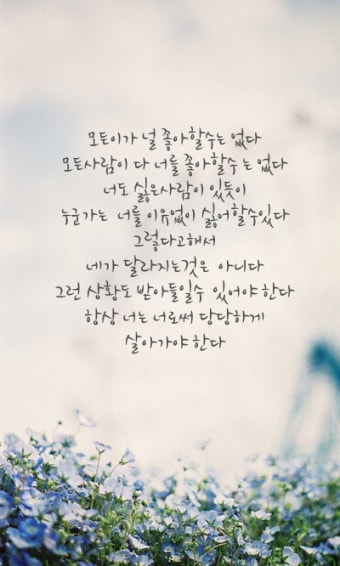 모든이가 널 좋아할수는 없다
모든사람이 다 너를 좋아할수 는 없다
너도 싫은사람이 있듯이
누군가는 너를 이유없이 싫어할수있다
그렇다고해서
네가 달라지는것은 아니다
그런 상황도 받아들일수 있어야 한다
항상 너는 너로써 당당하게
살아가야 한다